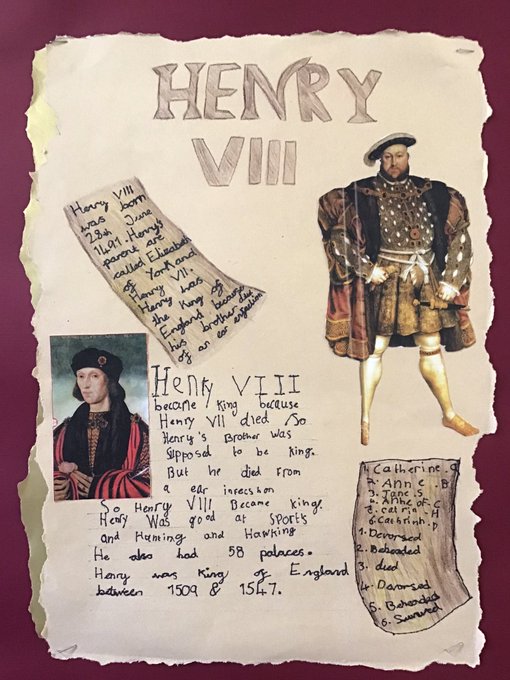 HENRY
VIII
Henry VIII
was born
28th June
1491. Henry's
parent are
called Elizabeth
of York and
Henry VII.
Henry was
the King of
England because
his brother died
of an ear
Henry VIII
became King because
Henry VII died so
Henry's Brother was
Supposed to be King.
But he died from
a ear
So Henry VIII Became King.
Henry Was good at Sports
and Hunting and Hawking
He also had 58 palaces.
Henry was King of England
between 1509 & 1547.
1. Catherine.
2. Anne.B
3. Jane.S
4. Anne of.C
5. Catrin.
6. Cathrinh.P
1. Devorsed
2. Beheaded
3. died
4. Devorsed
5. Beheaded
6. Survived